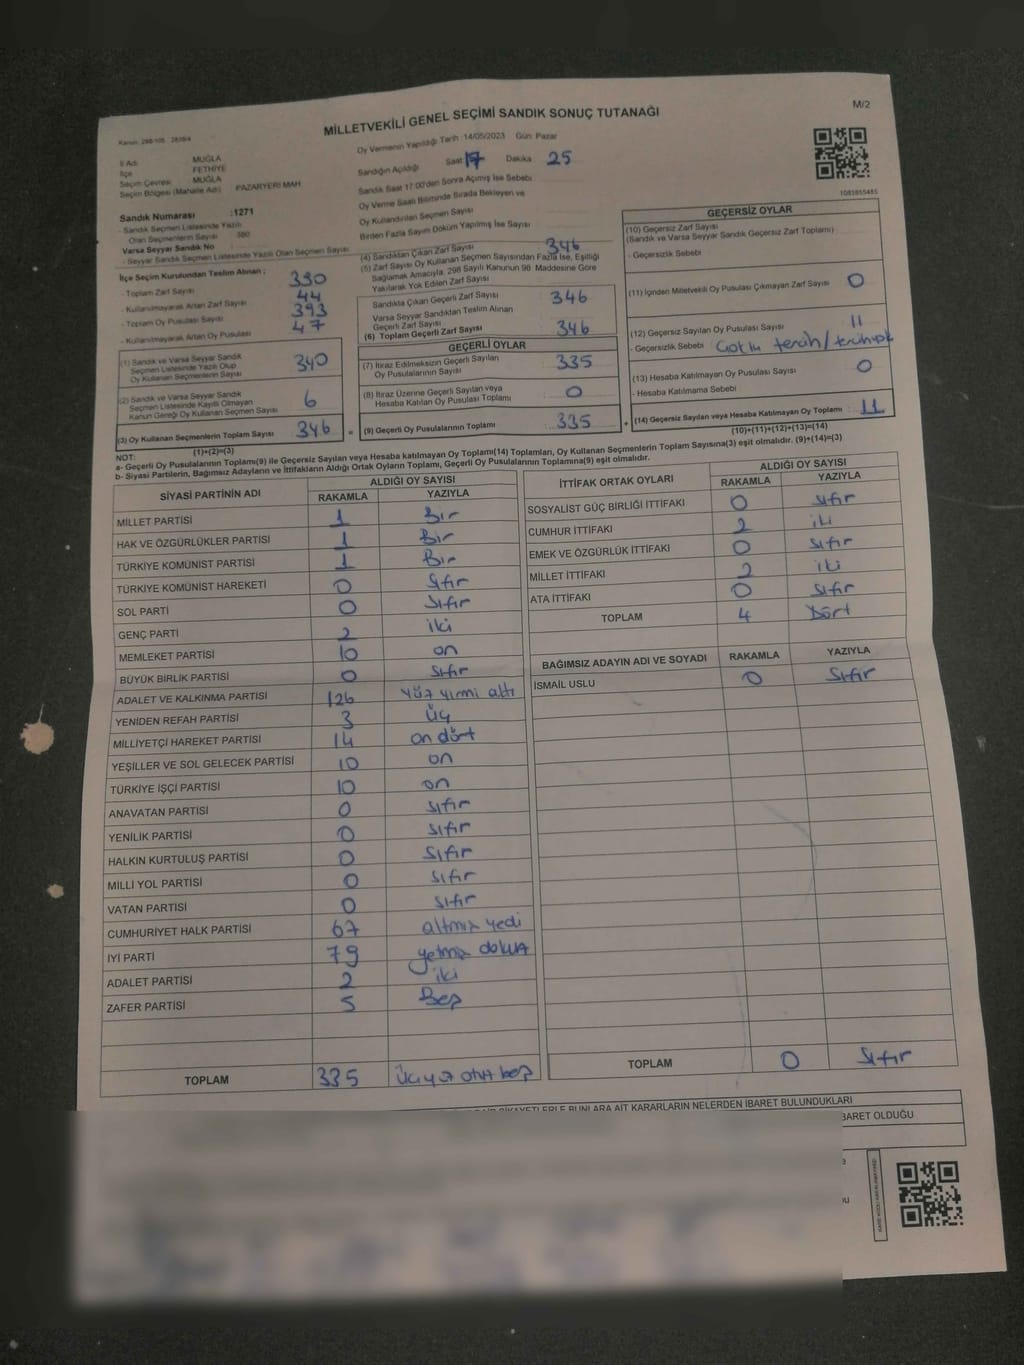 MİLLETVEKİLİ GENEL SEÇİMİ SANDIK SONUÇ TUTANAĞI
M/2
Oy Vermenin Yapıldığı Tarih :14/05/2023 Gün: Pazar
İl Adı MUĞLA
İlçe FETHİYE
Seçim Çevresi MUĞLA
Seçim Bölgesi (Mahalle Adı) PAZARYERİ MAH
Sandığın Açıldığı Saat 17 Dakika 25
Sandık Saat 17:00'den Sonra Açımış İse Sebebi
Oy Verme Saati Bitiminde Sırada Bekleyen ve
Oy Kullandırılan Seçmen Sayısı
Birden Fazla Sayım Döküm Yapılmış İse Sayısı
1081855485
Sandık Numarası :1271
- Sandık Seçmen Listesinde Yazılı
Olan Seçmenlerin Sayısı 380
Varsa Seyyar Sandık No
- Seyyar Sandık Seçmen Listesinde Yazılı Olan Seçmen Sayısı
İlçe Seçim Kurulundan Teslim Alınan ;
- Toplam Zarf Sayısı
- Kullanılmayarak Artan Zarf Sayısı 44
- Toplam Oy Pusulası Sayısı 393
- Kullanılmayarak Artan Oy Pusulası 47
(1) Sandık ve Varsa Seyyar Sandık
Seçmen Listesinde Yazılı Olup
Oy Kullanan Seçmenlerin Sayısı 340
(2) Sandık ve Varsa Seyyar Sandık
Seçmen Listesinde Kayıtlı Olmayan
Kanun Gereği Oy Kullanan Seçmen Sayısı 6
(3) Oy Kullanan Seçmenlerin Toplam Sayısı 346
(1)+(2)=(3)
(4) Sandıktan Çıkan Zarf Sayısı 346
(5) Zarf Sayısı Oy Kullanan Seçmen Sayısından Fazla İse, Eşitliği
Sağlamak Amacıyla, 298 Sayılı Kanunun 98. Maddesine Göre
Yakılarak Yok Edilen Zarf Sayısı
Sandıkta Çıkan Geçerli Zarf Sayısı 346
Varsa Seyyar Sandıktan Teslim Alınan
Geçerli Zarf Sayısı
(6) Toplam Geçerli Zarf Sayısı 346
GEÇERLİ OYLAR
(7) İtiraz Edilmeksizin Geçerli Sayılan
Oy Pusulalarının Sayısı 335
(8) İtiraz Üzerine Geçerli Sayılan veya
Hesaba Katılan Oy Pusulası Toplamı 0
= (9) Geçerli Oy Pusulalarının Toplamı 335 +
GEÇERSİZ OYLAR
(10) Geçersiz Zarf Sayısı
(Sandık ve Varsa Seyyar Sandık Geçersiz Zarf Toplamı)
- Geçersizlik Sebebi
(11) İçinden Milletvekili Oy Pusulası Çıkmayan Zarf Sayısı 0
(12) Geçersiz Sayılan Oy Pusulası Sayısı 11
- Geçersizlik Sebebi Çoklu tercih/
(13) Hesaba Katılmayan Oy Pusulası Sayısı 0
- Hesaba Katılmama Sebebi
(14) Geçersiz Sayılan veya Hesaba Katılmayan Oy Toplamı 11
(10)+(11)+(12)+(13)=(14)
NOT:
a- Geçerli Oy Pusulalarının Toplamı(9) ile Geçersiz Sayılan veya Hesaba katılmayan Oy Toplamı(14) Toplamları, Oy Kullanan Seçmenlerin Toplam Sayısına(3) eşit olmalıdır. (9)+(14)=(3)
b- Siyasi Partilerin, Bağımsız Adayların ve İttifakların Aldığı Ortak Oyların Toplamı, Geçerli Oy Pusulalarının Toplamına(9) eşit olmalıdır.
SİYASİ PARTİNİN ADI ALDIĞI OY SAYISI
RAKAMLA YAZIYLA
MİLLET PARTİSİ 1 Bir
HAK VE ÖZGÜRLÜKLER PARTİSİ 1 Bir
TÜRKİYE KOMÜNİST PARTİSİ 1 Bir
TÜRKİYE KOMÜNİST HAREKETİ 0 Sıfır
SOL PARTİ 0 Sıfır
GENÇ PARTİ 2 iki
MEMLEKET PARTİSİ 10 on
BÜYÜK BİRLİK PARTİSİ 0 Sıfır
ADALET VE KALKINMA PARTİSİ 126 yüz yirmi altı
YENİDEN REFAH PARTİSİ 3 üç
MİLLİYETÇİ HAREKET PARTİSİ 14 on dört
YEŞİLLER VE SOL GELECEK PARTİSİ 10 on
TÜRKİYE İŞÇİ PARTİSİ 10 on
ANAVATAN PARTİSİ 0 sıfır
YENİLİK PARTİSİ 0 sıfır
HALKIN KURTULUŞ PARTİSİ 0 sıfır
MİLLİ YOL PARTİSİ 0 sıfır
VATAN PARTİSİ 0 sıfır
CUMHURİYET HALK PARTİSİ 67 altmış yedi
İYİ PARTİ 79 yetmiş dokuz
ADALET PARTİSİ 2 iki
ZAFER PARTİSİ 5 Beş
TOPLAM 335 üçyüz otuz beş
İTTİFAK ORTAK OYLARI ALDIĞI OY SAYISI
RAKAMLA YAZIYLA
SOSYALİST GÜÇ BİRLİĞİ İTTİFAKI 0 sıfır
CUMHUR İTTİFAKI 2 iki
EMEK VE ÖZGÜRLÜK İTTİFAKI 0 sıfır
MİLLET İTTİFAKI 2 iki
ATA İTTİFAKI 0 sıfır
TOPLAM 4 Dört
BAĞIMSIZ ADAYIN ADI VE SOYADI RAKAMLA YAZIYLA
İSMAİL USLU 0 Sıfır
TOPLAM 0 Sıfır
ŞİKAYETLERLE BUNLARA AİT KARARLARIN NELERDEN İBARET BULUNDUKLARI
İBARET OLDUĞU